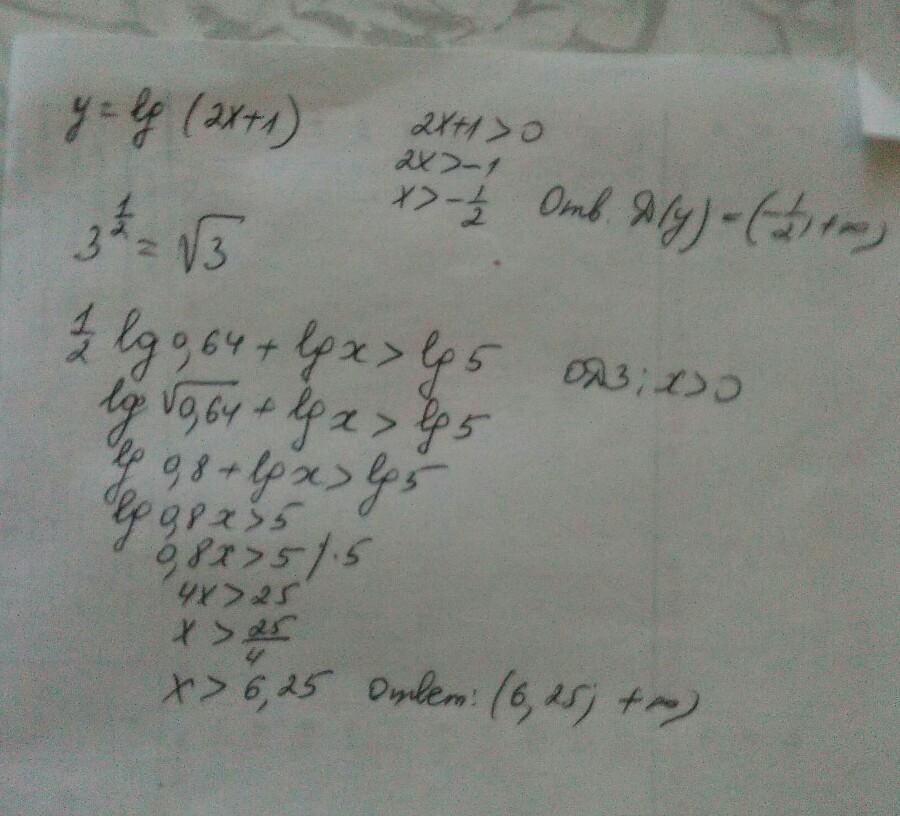 y = lg (2x+1)
2x+1 > 0
2x > -1
x > -1/2 Отв. Д(y) = (-1/2; +∞)
3^(1/2) = √3
1/2 lg 0,64 + lg x > lg 5 ОДЗ; x > 0
lg √0,64 + lg x > lg 5
lg 0,8 + lg x > lg 5
lg 0,8x > 5
0,8x > 5 / · 5
4x > 25
x > 25/4
x > 6,25 Ответ: (6,25; +∞)